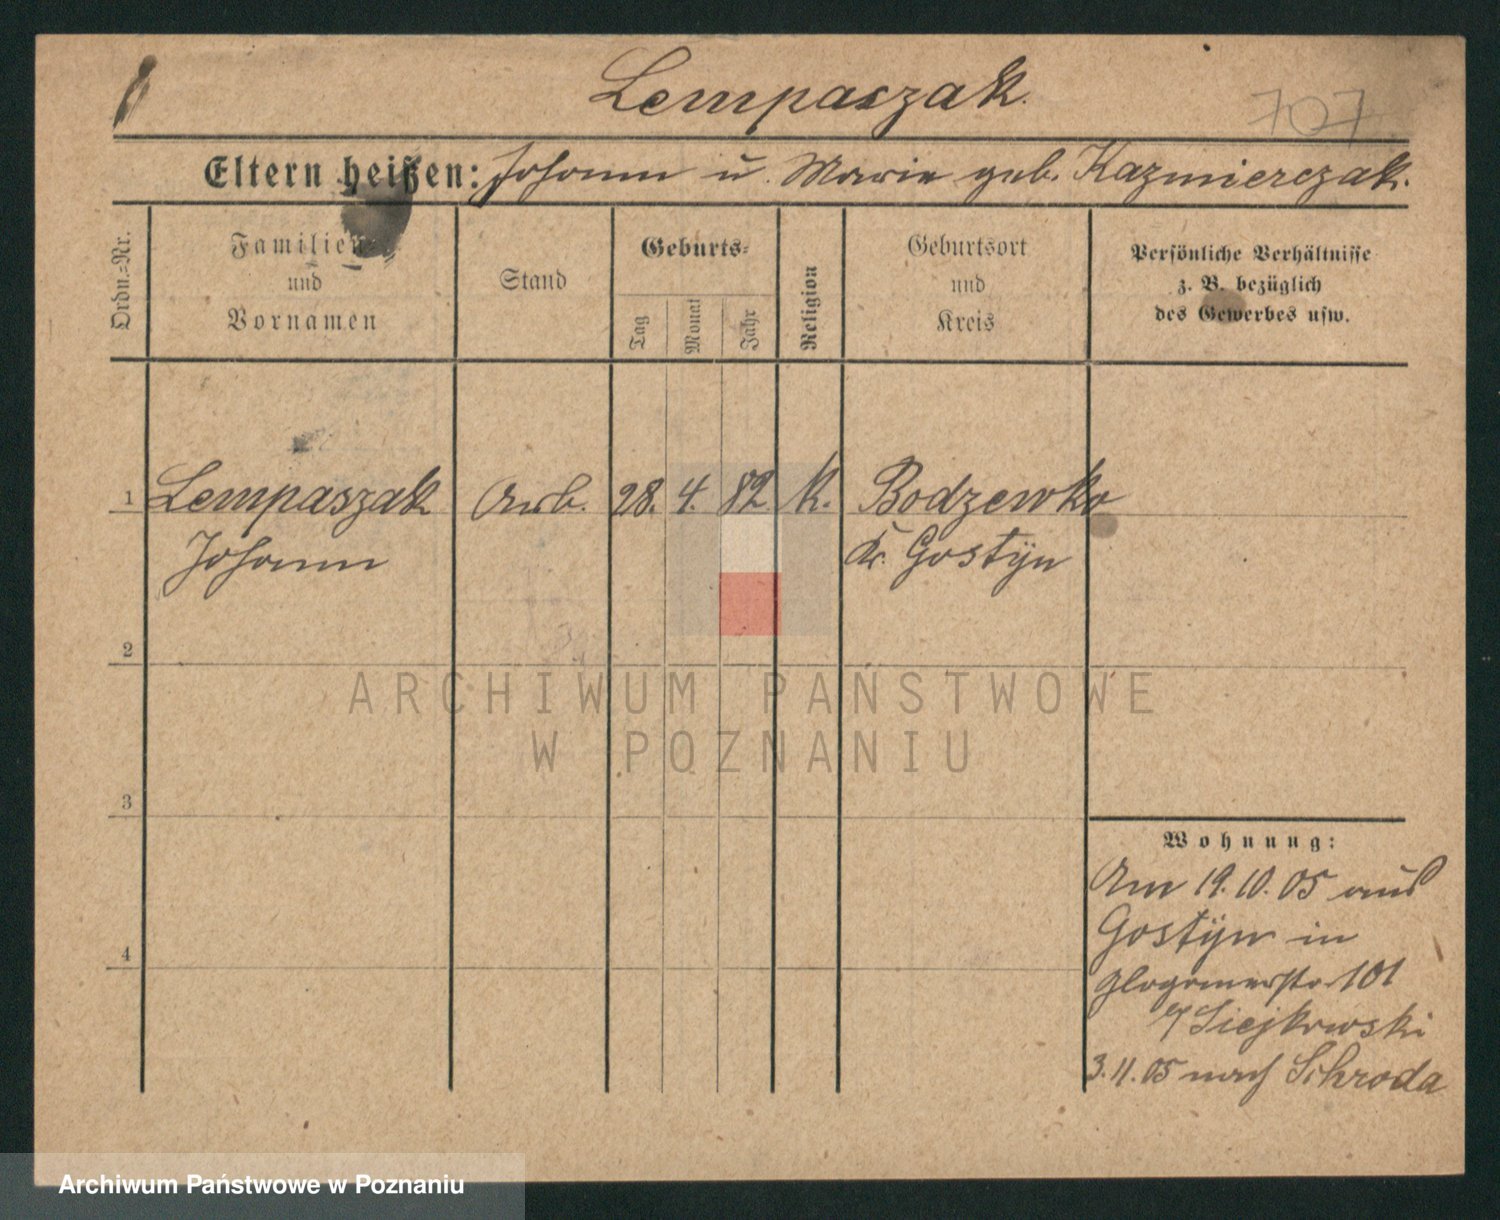 Lempaszak.
707
Eltern heißen: Johann u. Marie geb. Kazmierczak.
Ordn.=Nr.
Familien-
und
Vornamen
Stand
Geburts=
Tag
Monat
Jahr
Religion
Geburtsort
und
Kreis
Persönliche Verhältnisse
z. B. bezüglich
des Gewerbes usw.
1 Lempaszak Arb. 28. 4. 82 k. Bodzewko
Johann Kr. Gostÿn
2
ARCHIWUM PAŃSTWOWE
W POZNANIU
3
Wohnung:
Am 19.10.05 aus
Gostÿn in
Glogauerstr 101
b/ Siejkowski
4
3.11.05 nach Schroda
Archiwum Państwowe w Poznaniu